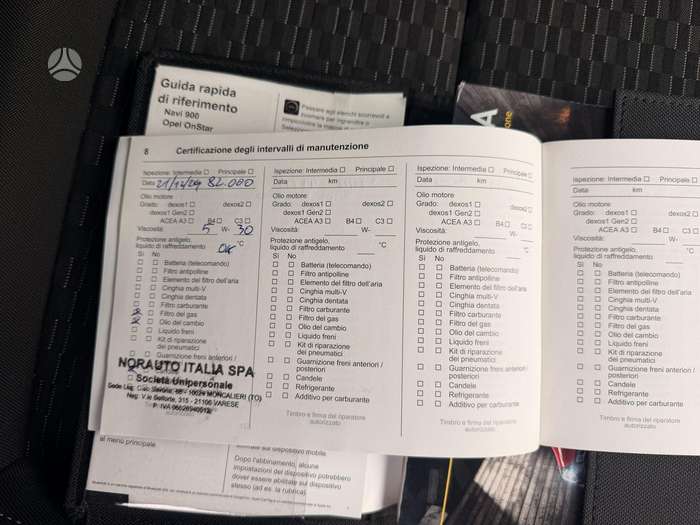 Guida rapida
di riferimento
Navi 900
Opel OnStar
8 Certificazione degli intervalli di manutenzione
Ispezione: Intermedia □ Principale □
Data 21/12/ 82 000
Olio motore
Grado: dexos1 □ dexos2 □
dexos1 Gen2 □
ACEA A3 □ B4 □ C3 □
Viscosità: 5 W- 30
Protezione antigelo,
liquido di raffreddamento OK °C
Sì No
□ □ Batteria (telecomando)
□ □ Filtro antipolline
□ □ Elemento del filtro dell'aria
□ □ Cinghia multi-V
□ □ Cinghia dentata
□ □ Filtro carburante
□ □ Filtro del gas
□ □ Olio del cambio
□ □ Liquido freni
□ □ Kit di riparazione
dei pneumatici
□ □ Guarnizione freni anteriori /
NORAUTO ITALIA SPA
Società Unipersonale
10024 MONCALIERI (TO)
Neg. V.le Belforte, 315 - 21100 VARESE
Ispezione: Intermedia □ Principale □
Data km
Olio motore
Grado: dexos1 □ dexos2 □
dexos1 Gen2 □
ACEA A3 □ B4 □ C3 □
Viscosità: W-
Protezione antigelo,
liquido di raffreddamento °C
Sì No
□ □ Batteria (telecomando)
□ □ Filtro antipolline
□ □ Elemento del filtro dell'aria
□ □ Cinghia multi-V
□ □ Cinghia dentata
□ □ Filtro carburante
□ □ Filtro del gas
□ □ Olio del cambio
□ □ Liquido freni
□ □ Kit di riparazione
dei pneumatici
□ □ Guarnizione freni anteriori /
posteriori
□ □ Candele
□ □ Refrigerante
□ □ Additivo per carburante
Timbro e firma del riparatore
autorizzato
Ispezione: Intermedia □ Principale □
Data km
Olio motore
Grado: dexos1 □ dexos2 □
dexos1 Gen2 □
ACEA A3 □ B4 □ C3 □
Viscosità: W-
Protezione antigelo,
liquido di raffreddamento °C
Sì No
□ □ Batteria (telecomando)
□ □ Filtro antipolline
□ □ Elemento del filtro dell'aria
□ □ Cinghia multi-V
□ □ Cinghia dentata
□ □ Filtro carburante
□ □ Filtro del gas
□ □ Olio del cambio
□ □ Liquido freni
□ □ Kit di riparazione
dei pneumatici
□ □ Guarnizione freni anteriori /
posteriori
□ □ Candele
□ □ Refrigerante
□ □ Additivo per carburante
Timbro e firma del riparatore
autorizzato
Ispezione: Intermedia □ Principale
Data km
Olio motore
Grado: dexos1 □
dexos1 Gen2 □
ACEA A3 □ B4 □
Viscosità: W-
Protezione antigelo,
liquido di raffreddamento
Sì No
□ □ Batteria (telecomando)
□ □ Filtro antipolline
□ □ Elemento del filtro dell'aria
□ □ Cinghia multi-V
□ □ Cinghia dentata
□ □ Filtro carburante
□ □ Filtro del gas
□ □ Olio del cambio
□ □ Liquido freni
□ □ Kit di riparazione
dei pneumatici
□ □ Guarnizione freni anteriori /
posteriori
□ □ Candele
□ □ Refrigerante
□ □ Additivo per carburante
Timbro e firma del riparatore
autorizzato
al menu principale
Dopo l'abbinamento, alcune
impostazioni del dispositivo potrebbero
dover essere abilitate sul dispositivo
stesso (ad es. la rubrica).